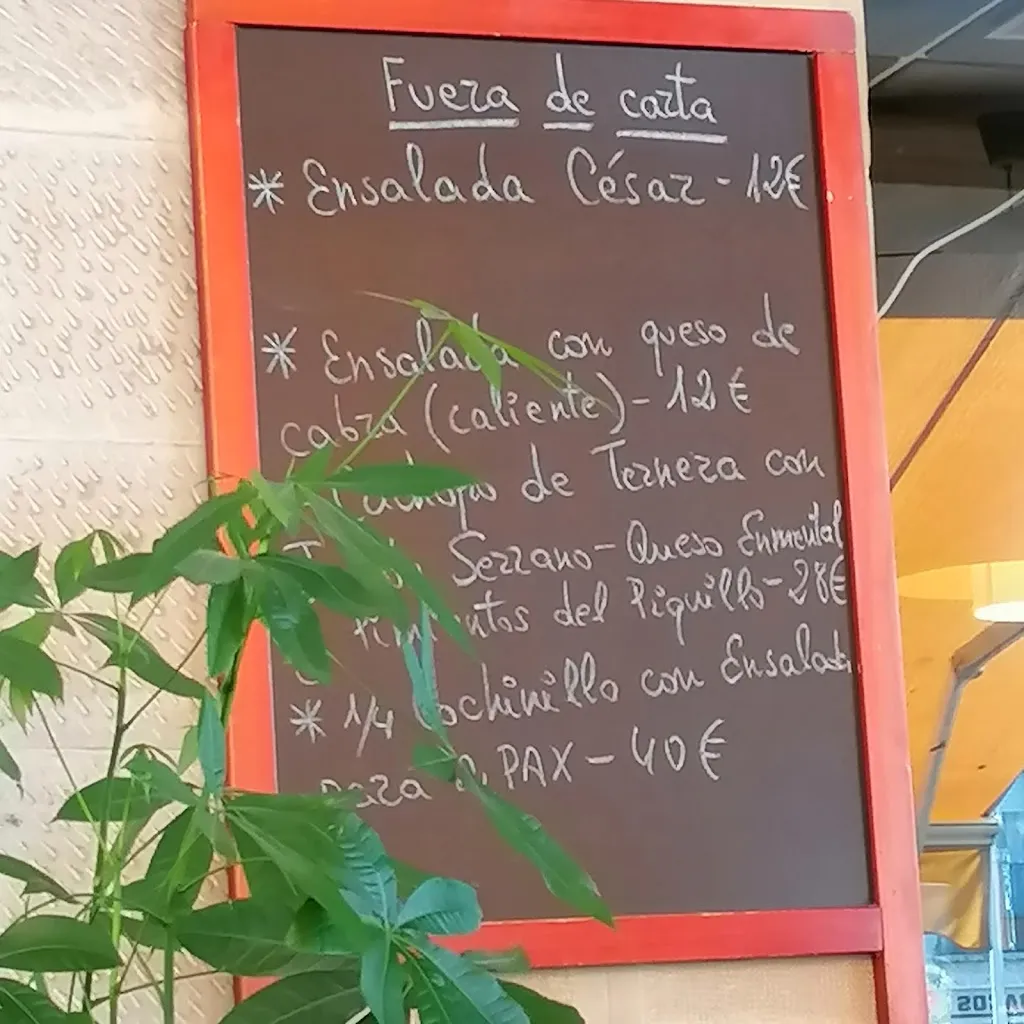 Fuera de carta
* Ensalada César - 12€
* Ensalada con queso de
cabra (caliente) - 12€
Cachopo de Ternera con
Serrano - Queso Enmental
Pimientos del Piquillo - 28€
* 1/4 Cochinillo con Ensalada
para 2 PAX - 40€